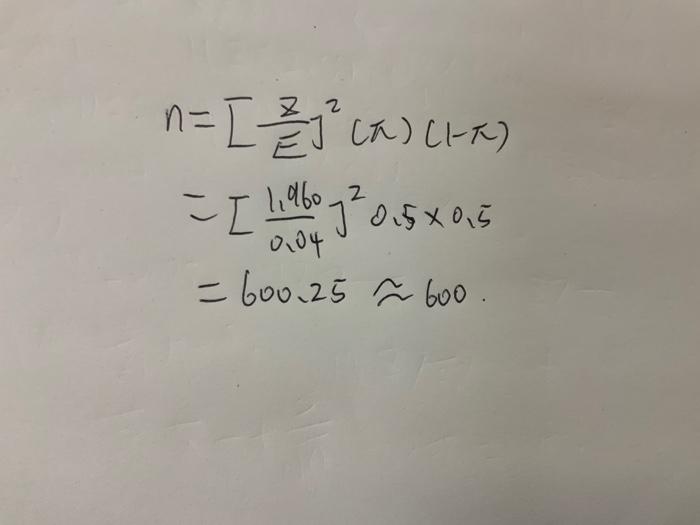 n = [Z/E]² (π) (1-π)
= [1.960/0.04]² 0.5 × 0.5
= 600.25 ≈ 600.